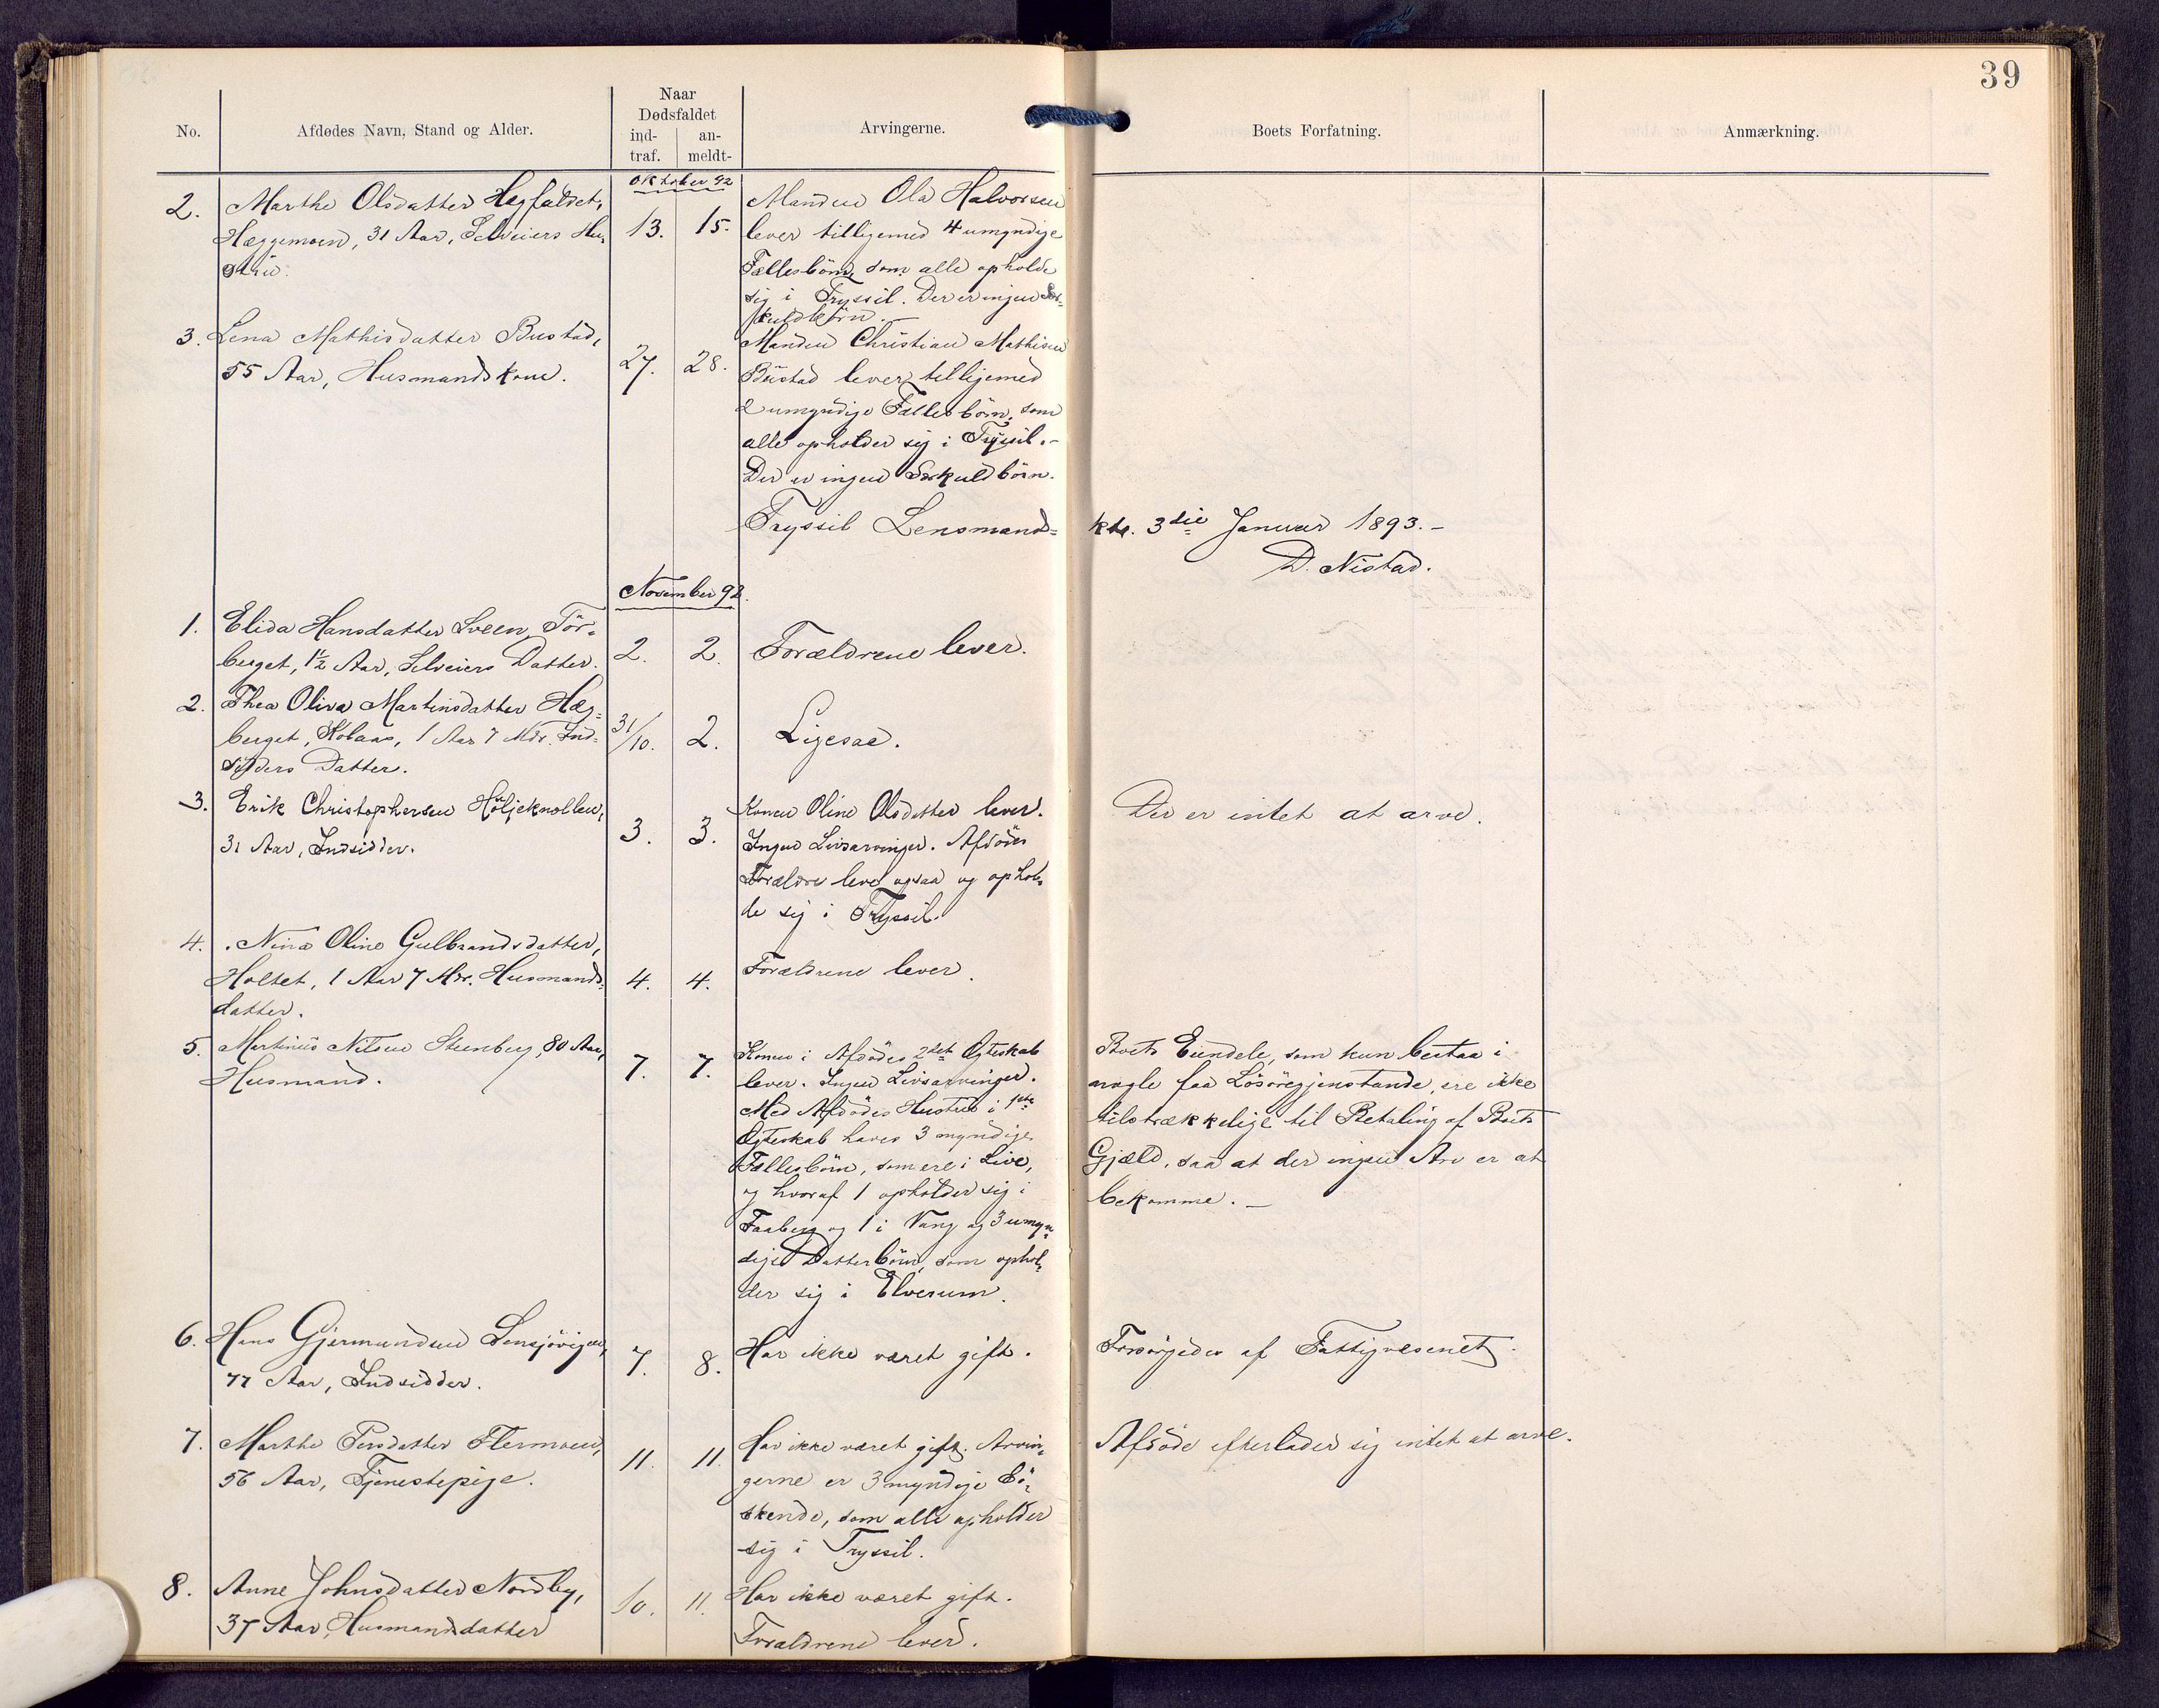 39
No.
Afdødes Navn, Stand og Alder.
Naar
Dødsfaldet
ind-
traf.
an-
meldt-
Arvingerne.
Boets Forfatning.
Anmærkning.
Oktober 92
2. Marthe Olsdatter Hegfaldet,
Hæggemoen, 31 Aar, Selveiers Hu-
stru.
13. 15.
Manden Ola Halvorsen
lever tilligemed 4 umyndige
Fællesbörn, som alle opholde
sig i Tryssil. Der er ingen Sær-
kuldbörn.
3. Lena Mathisdatter Bustad,
55 Aar, Husmandskone.
27. 28.
Manden Christian Mathisen
Bustad lever tilligemed
2 umyndige Fællesbörn, som
alle opholder sig i Tryssil.-
Der er ingen Særkuldbörn.
Tryssil Lensmands-
ktr. 3die Januar 1893.-
D. Nistad.
November 92.
1. Elida Hansdatter Sveen, Tör-
berget, 1½ Aar, Selveiers Datter.
2. 2.
Forældrene lever.
2. Thea Oliva Martinsdatter Hæg-
berget, 1 Aar 7 Mdr. Ind-
sidders Datter.
31/10. 2.
Ligesaa.
3. Erik Christophersen Höljeknollen,
31 Aar, Indsidder.
3. 3.
Konen Oline Olsdatter lever.
Ingen Livsarvinger. Afdödes
Forældre leve ogsaa og ophol-
de sig i Tryssil.
Der er intet at arve.
4. Nina Oline Gulbrandsdatter,
Holtet, 1 Aar 7 Mdr. Husmands-
datter.
4. 4.
Forældrene lever.
5. Martinus Nilsen Steenberg, 80 Aar,
Husmand.
7. 7.
Konen i Afdödes 2det Ægteskab
lever. Ingen Livsarvinger.
Med Afdödes Hustru i 1ste
Ægteskab haves 3 myndige
Fællesbörn, som ere i Live,
og hvoraf 1 opholder sig i
Faaberg og 1 i Vang og 3 umyn-
dige Datterbörn, som ophol-
der sig i Elverum.
Boets Eiendele, som kun bestaa i
nogle faa Lösöregjenstande, ere ikke
tilstrækkelige til Betaling af Boets
Gjæld, saa at der ingen Arv er at
bekomme. -
6. Hans Gjermundsen Sensjövigen,
77 Aar, Indsidder.
7. 8.
Har ikke været gift.
Forsörgedes af Fattigvesenet.
7. Marthe Persdatter Flermoen,
56 Aar, Tjenestepige.
11. 11.
Har ikke været gift. Arvin-
gerne er 3 myndige Sö-
skende, som alle opholder
sig i Tryssil.
Afdöde efterlader sig intet at arve.
8. Anne Johnsdatter Nordby,
37 Aar, Husmandsdatter
10. 11.
Har ikke været gift.
Forældrene lever.